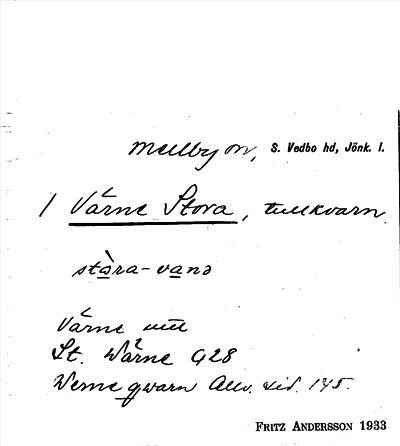 Mellby sn, S. Vedbo hd, Jönk. l.
1 Värne Stora, tullkvarn
stàra-vanə
Värne utt
St. Wärne G28
Werne qwarn Allv. sid. 145.
FRITZ ANDERSSON 1933